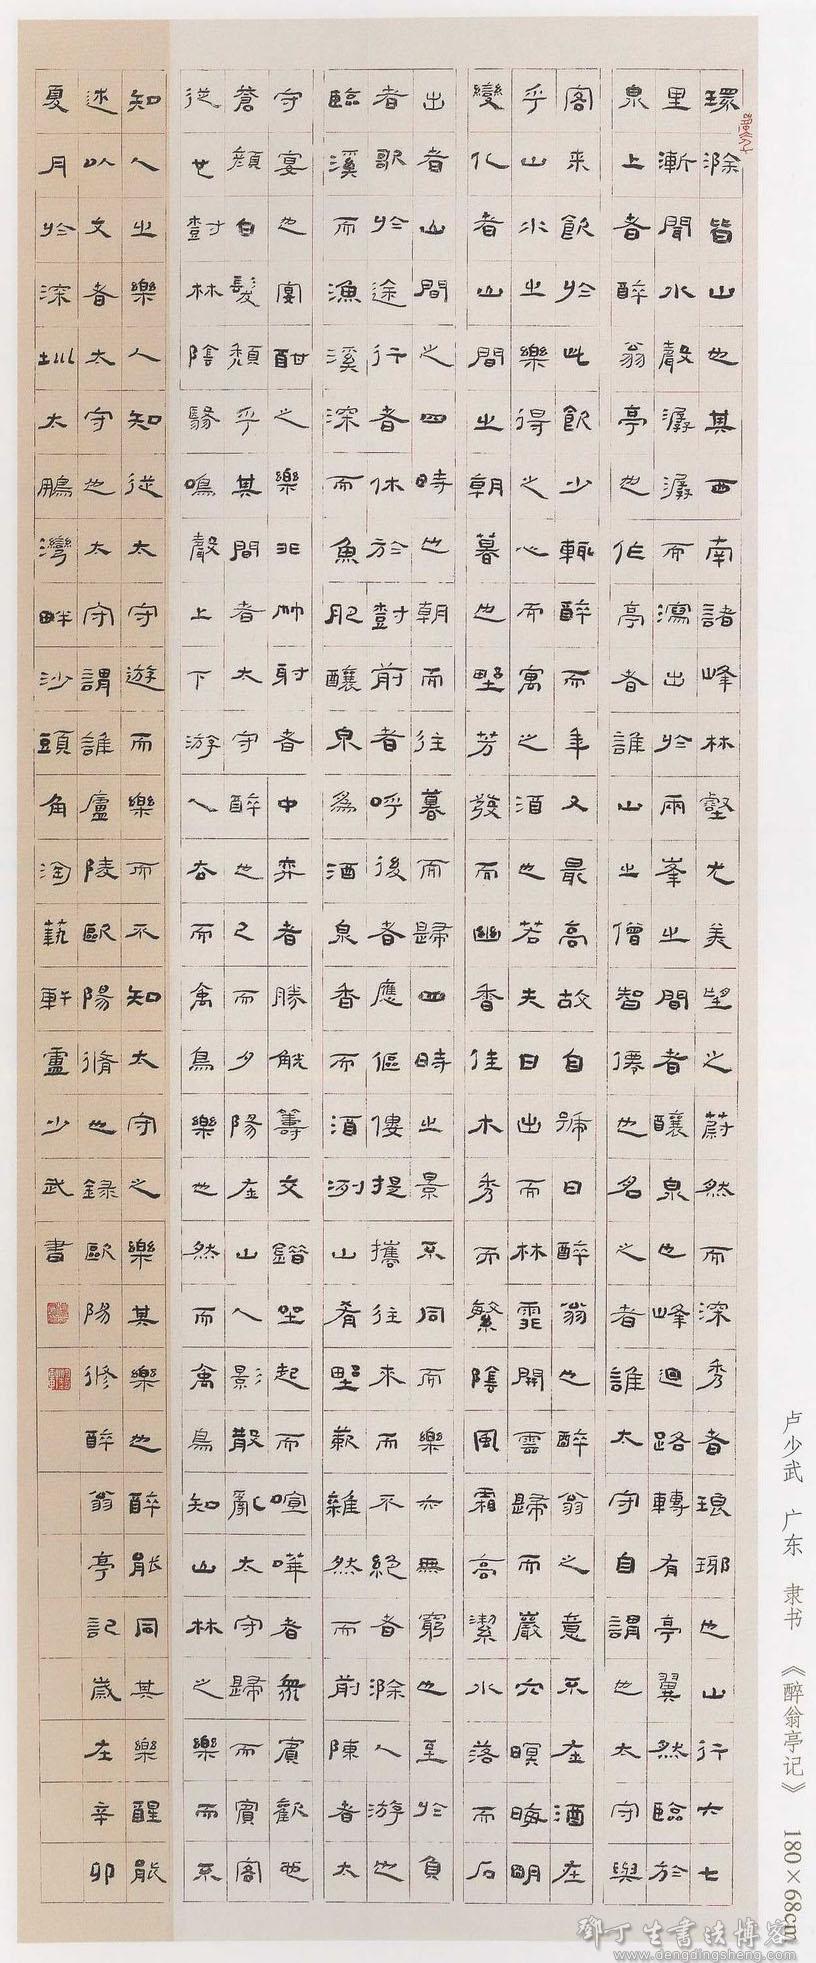 環滁皆山也其西南諸峰林壑尤美望之蔚然而深秀者琅琊也山行六七
里漸聞水聲潺潺而瀉出於兩峯之間者釀泉也峰迴路轉有亭翼然臨於
泉上者醉翁亭也作亭者誰山之僧智僊也名之者誰太守自謂也太守與
客來飲於此飲少輒醉而年又最高故自號曰醉翁也醉翁之意不在酒在
乎山水之樂得之心而寓之酒也若夫日出而林霏開雲歸而巖穴暝晦明
變化者山間之朝暮也野芳發而幽香佳木秀而繁陰風霜高潔水落而石
出者山間之四時也朝而往暮而歸四時之景不同而樂亦無窮也至於負
者歌於途行者休於樹前者呼後者應傴僂提攜往來而不絕者滁人游也
臨溪而漁溪深而魚肥釀泉為酒泉香而酒洌山肴野蔌雜然而前陳者太
守宴也宴酣之樂非射者中弈者勝觥籌交錯坐起而喧嘩者眾賓歡也
蒼顏白髮頹乎其間者太守醉也已而夕陽在山人影散亂太守歸而賓客
從也樹林陰翳鳴聲上下游人去而禽鳥樂也然而禽鳥知山林之樂而不
知人之樂人知從太守遊而樂而不知太守之樂其樂也醉能同其樂醒能
述以文者太守也太守謂誰廬陵歐陽脩也錄歐陽修醉翁亭記歲在辛卯
夏月於深圳大鵬灣畔沙頭角淘藝軒盧少武書
卢少武 广东 隶书 《醉翁亭记》 180×68cm
鄧丁生書法博客
www.dengdingsheng.com